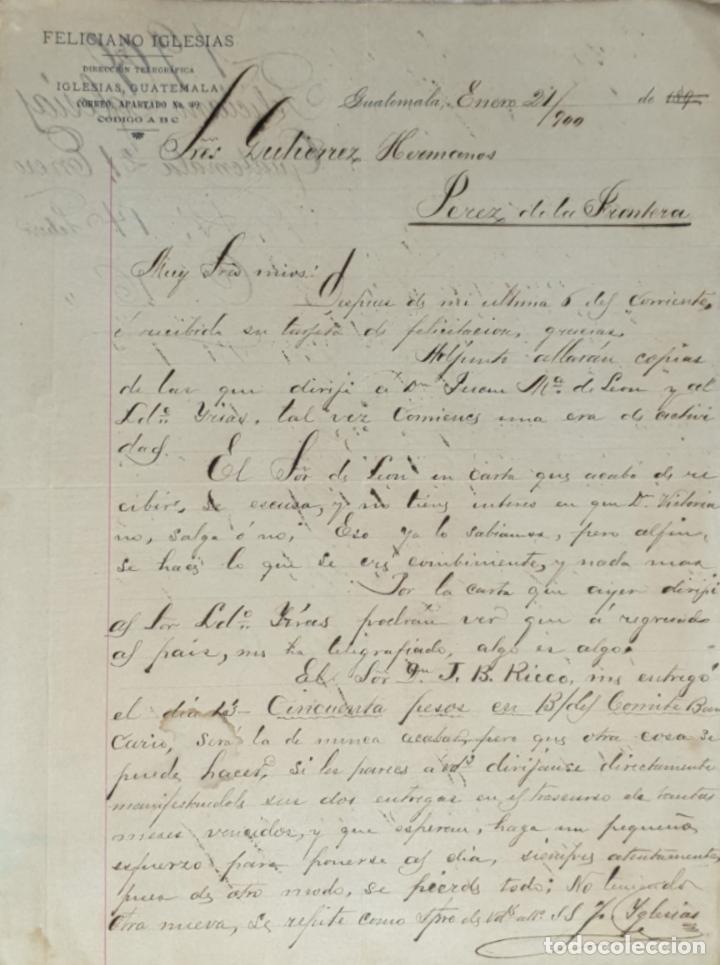 FELICIANO IGLESIAS
DIRECCIÓN TELEGRÁFICA
IGLESIAS, GUATEMALA
CORREO, APARTADO No. 49
CODIGO A B C
Guatemala, Enero 21/900 de 189
Sres. Gutierrez Hermanos
Perez de la Frontera
Muy Sres mios: Despues de mi ultima 6 del corriente,
é recibido su tarjeta de felicitacion, gracias.
Adjunto allarán copias
de las que diriji a Dn Juan Ma. de Leon y al
Ldo. Yrias, tal vez comience una era de activi
dad.
El Sor de Leon en carta que acabo de re
cibir, se escusa, y no tiene interes en que Dn. Victoria
no, salga ó no, Eso ya lo sabiamos, pero alfin,
se hace lo que se cre combiniente, y nada mas
Por la carta que ayer diriji
al Sor Ldo. Yrias podrán ver que á regresado
al país, me ha telegrafiado, algo es algo.
El Sor Dn J. B. Ricco, me entregó
el día 13 Cincuenta pesos en B/ del Comite Ban
cario, será la de nunca acabar, pero que otra cosa se
puede hacer, si les parece a Vds. dirijanse directamente
manifestandole sus dos entregas en el trascurso de tantos
meses vencidos, y que esperan, haga un pequeño
esfuerzo para ponerse al dia, siempre atentamente,
pues de otro modo, se pierde todo; No teniendo
otra nueva, se repite como spre de Vds. atto. S S F. Iglesias
todocoleccion.net